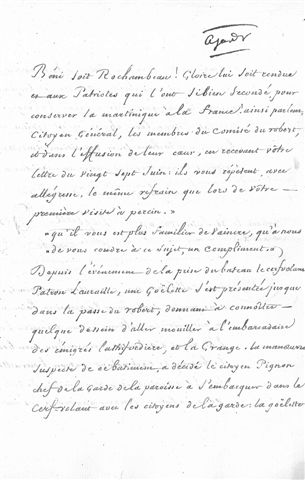 Béni soit Rochambeau! Gloire lui soit rendue
et aux Patriotes qui l'ont si bien Secondé pour
conserver la martinique à la France: ainsi parlent,
Citoyen Général, les membres du Comité du robert,
et dans l'effusion de leur cœur, en recevant vôtre
lettre du vingt Sept Juin: ils nous répètent, avec
allégresse, le même refrain que lors de vôtre
première visite à
"qu'il vous est plus familier de vaincre, qu'à nous
"de vous coudre à ce Sujet un compliment."
Depuis l'événement de la prise du bateau le cerfvolant
Patron une Goëlette S'est présentée jusque
dans la passe du robert, donnant à connoître
quelque dessein d'aller mouiller à l'embarcadaire
des émigrés et la Grange. La manœuvre
Suspecte de ce bâtiment, a décidé le citoyen Pignon
chef de la Garde de la paroisse à S'embarquer dans le
Cerf-volant avec les citoyens de la garde: la goëlette